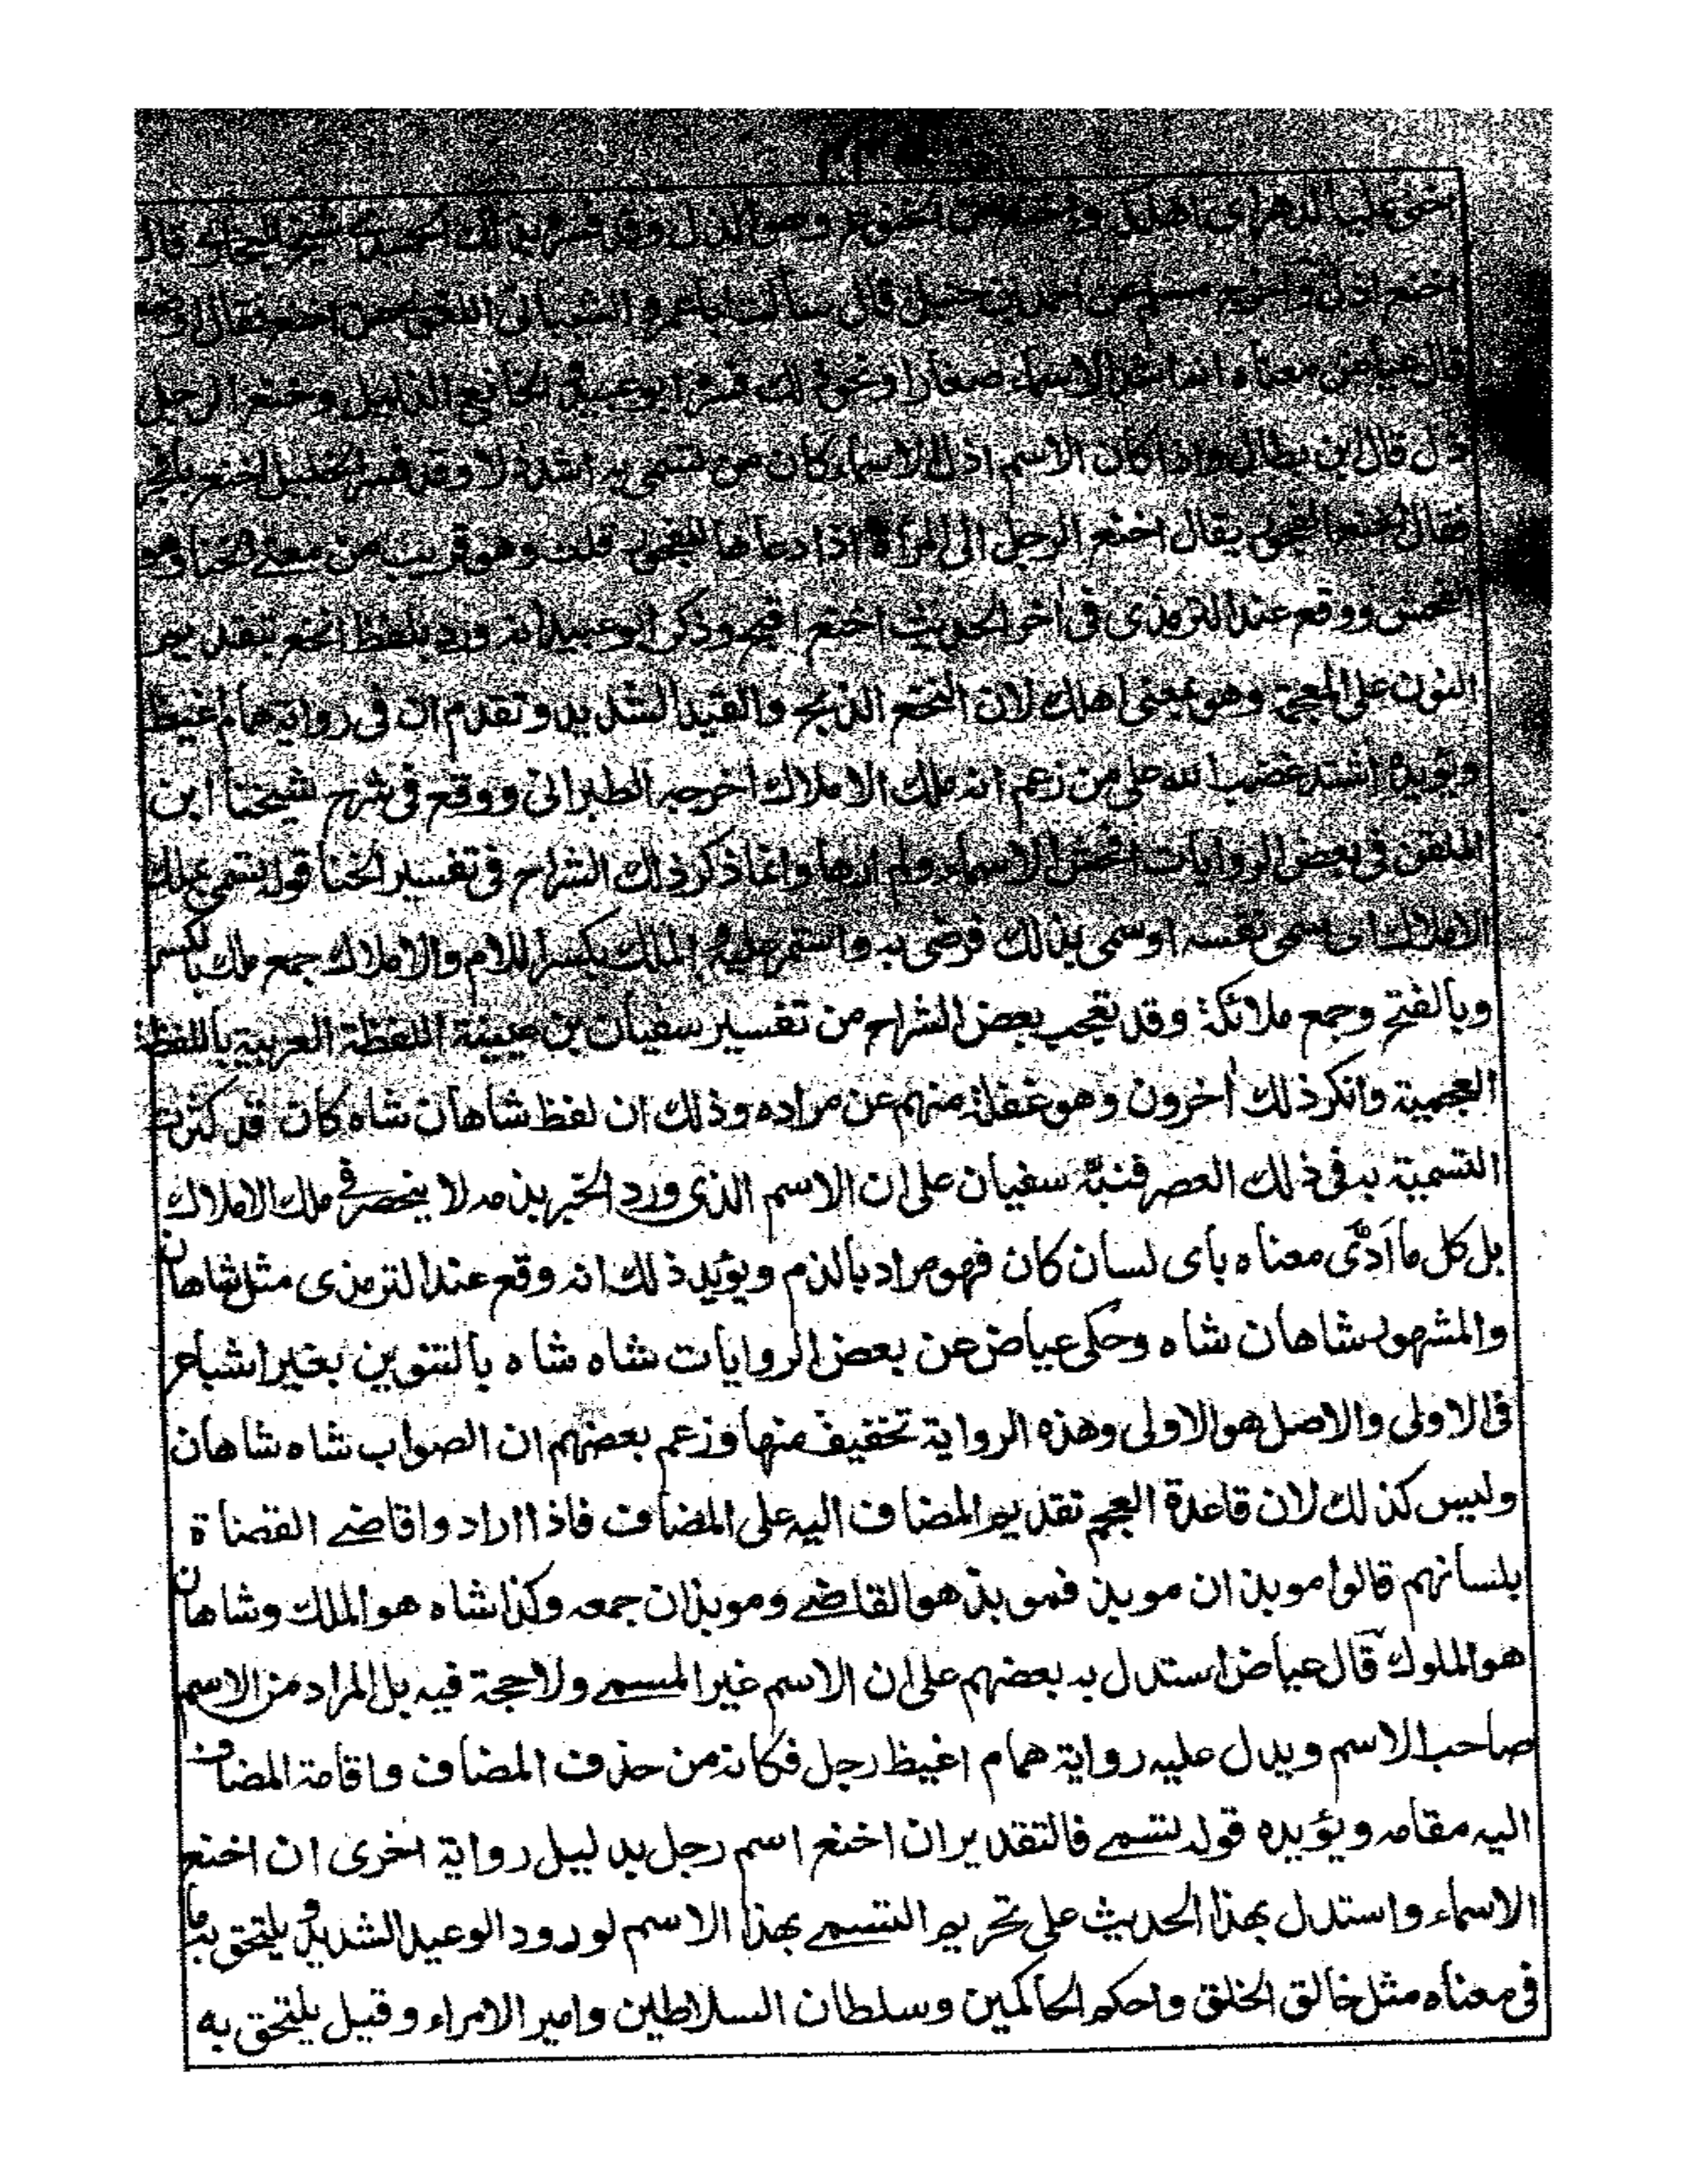 اخنى عليه الدهر اى اهلكه وقد فسر بذلك الحميدى شيخ البخارى قال
اخنع اذل واخرج مسلم عن احمد بن حنبل قال سألت ابا عمرو الشيبانى اللغوى عن اخنع فقال اوضع
قال عياض معناه انه اشد الاسماء صغارا ونحو ذلك فسره ابو عبيد الخانع الذليل وخنع الرجل
ذل قال ابن بطال واذا كان الاسم اذل الاسماء كان من تسمى به اشد ذلا وقد فسر الخليل اخنع بافجر
فقال الخنع الفجور يقال اخنع الرجل الى المرأة اذا دعاها للفجور قلت وهو قريب من معنے الخنا وهو
الفحش ووقع عند الترمذى فى اخر الحديث اخنع اقبح وذكر ابو عبيد انه ورد بلفظ انخع بتقديم
النون على المعجمة وهو بمعنى اهلك لان النخع الذبح والقتل الشديد وتقدم ان فى رواية همام اغيظ
ويؤيده اشتد غضب الله على من زعم انه ملك الاملاك اخرجه الطبرانى ووقع فى شرح شيخنا ابن
الملقن فى بعض الروايات افحش الاسماء ولم ارها وانما ذكر ذلك الشراح فى تفسير الخنا قوله تسمى بملك
الاملاك اى سمى نفسه او سمى بذلك فرضى به واستمر عليه الملك بكسر اللام والاملاك جمع ملك بالكسر
وبالفتح وجمع ملائكة وقد تعجب بعض الشراح من تفسير سفيان بن عيينة اللفظة العربية باللفظة
العجمية وانكر ذلك اخرون وهو غفلة منهم عن مراده وذلك ان لفظ شاهان شاه كان قد كثرت
التسمية به فى ذلك العصر فنبّه سفيان على ان الاسم الذى ورد الخبر بذمه لا ينحصر فى ملك الاملاك
بل كل ما اَدّى معناه باى لسان كان فهو مراد بالذم ويؤيد ذلك انه وقع عند الترمذى مثل شاهان
والمشهور شاهان شاه وحكى عياض عن بعض الروايات شاه شاه بالتنوين بغير اشباع
فى الاولى والاصل هو الاولى وهذه الرواية تخفيف منها وزعم بعضهم ان الصواب شاه شاهان
وليس كذلك لان قاعدة العجم تقديم المضاف اليه على المضاف فاذا ارادوا قاضے القضاة
بلسانهم قالوا موبذ ان موبذ فموبذ هو القاضے وموبذان جمعه وكذا شاه هو الملك وشاهان
هو الملوك قال عياض استدل به بعضهم على ان الاسم غير المسمے ولا حجة فيه بل المراد من الاسم
صاحب الاسم ويدل عليه رواية همام اغيظ رجل فكانه من حذف المضاف واقامة المضاف
اليه مقامه ويؤيده قوله تسمے فالتقدير ان اخنع اسم رجل بدليل رواية اخرى ان اخنع
الاسماء واستدل بهذا الحديث على تحريم التسمے بهذا الاسم لورود الوعيد الشديد ويلتحق به ما
فى معناه مثل خالق الخلق واحكم الحاكمين وسلطان السلاطين وامير الامراء وقيل يلتحق به